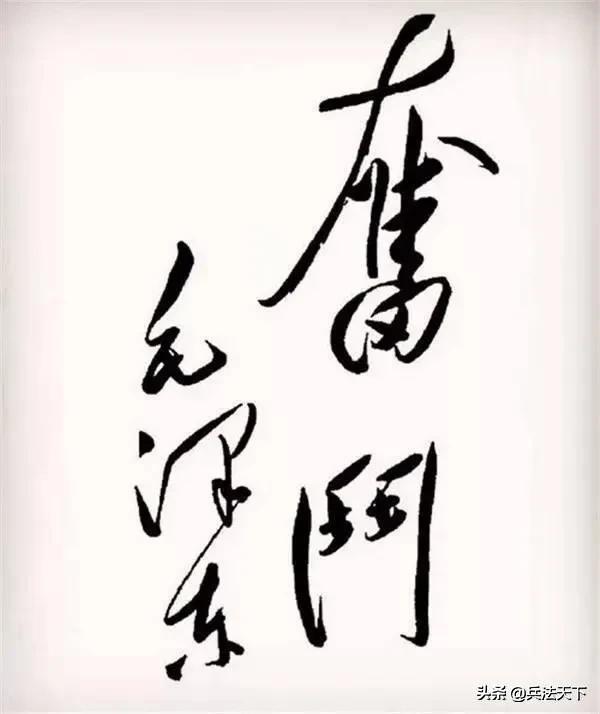 奮鬥
毛泽东
头条 @兵法天下